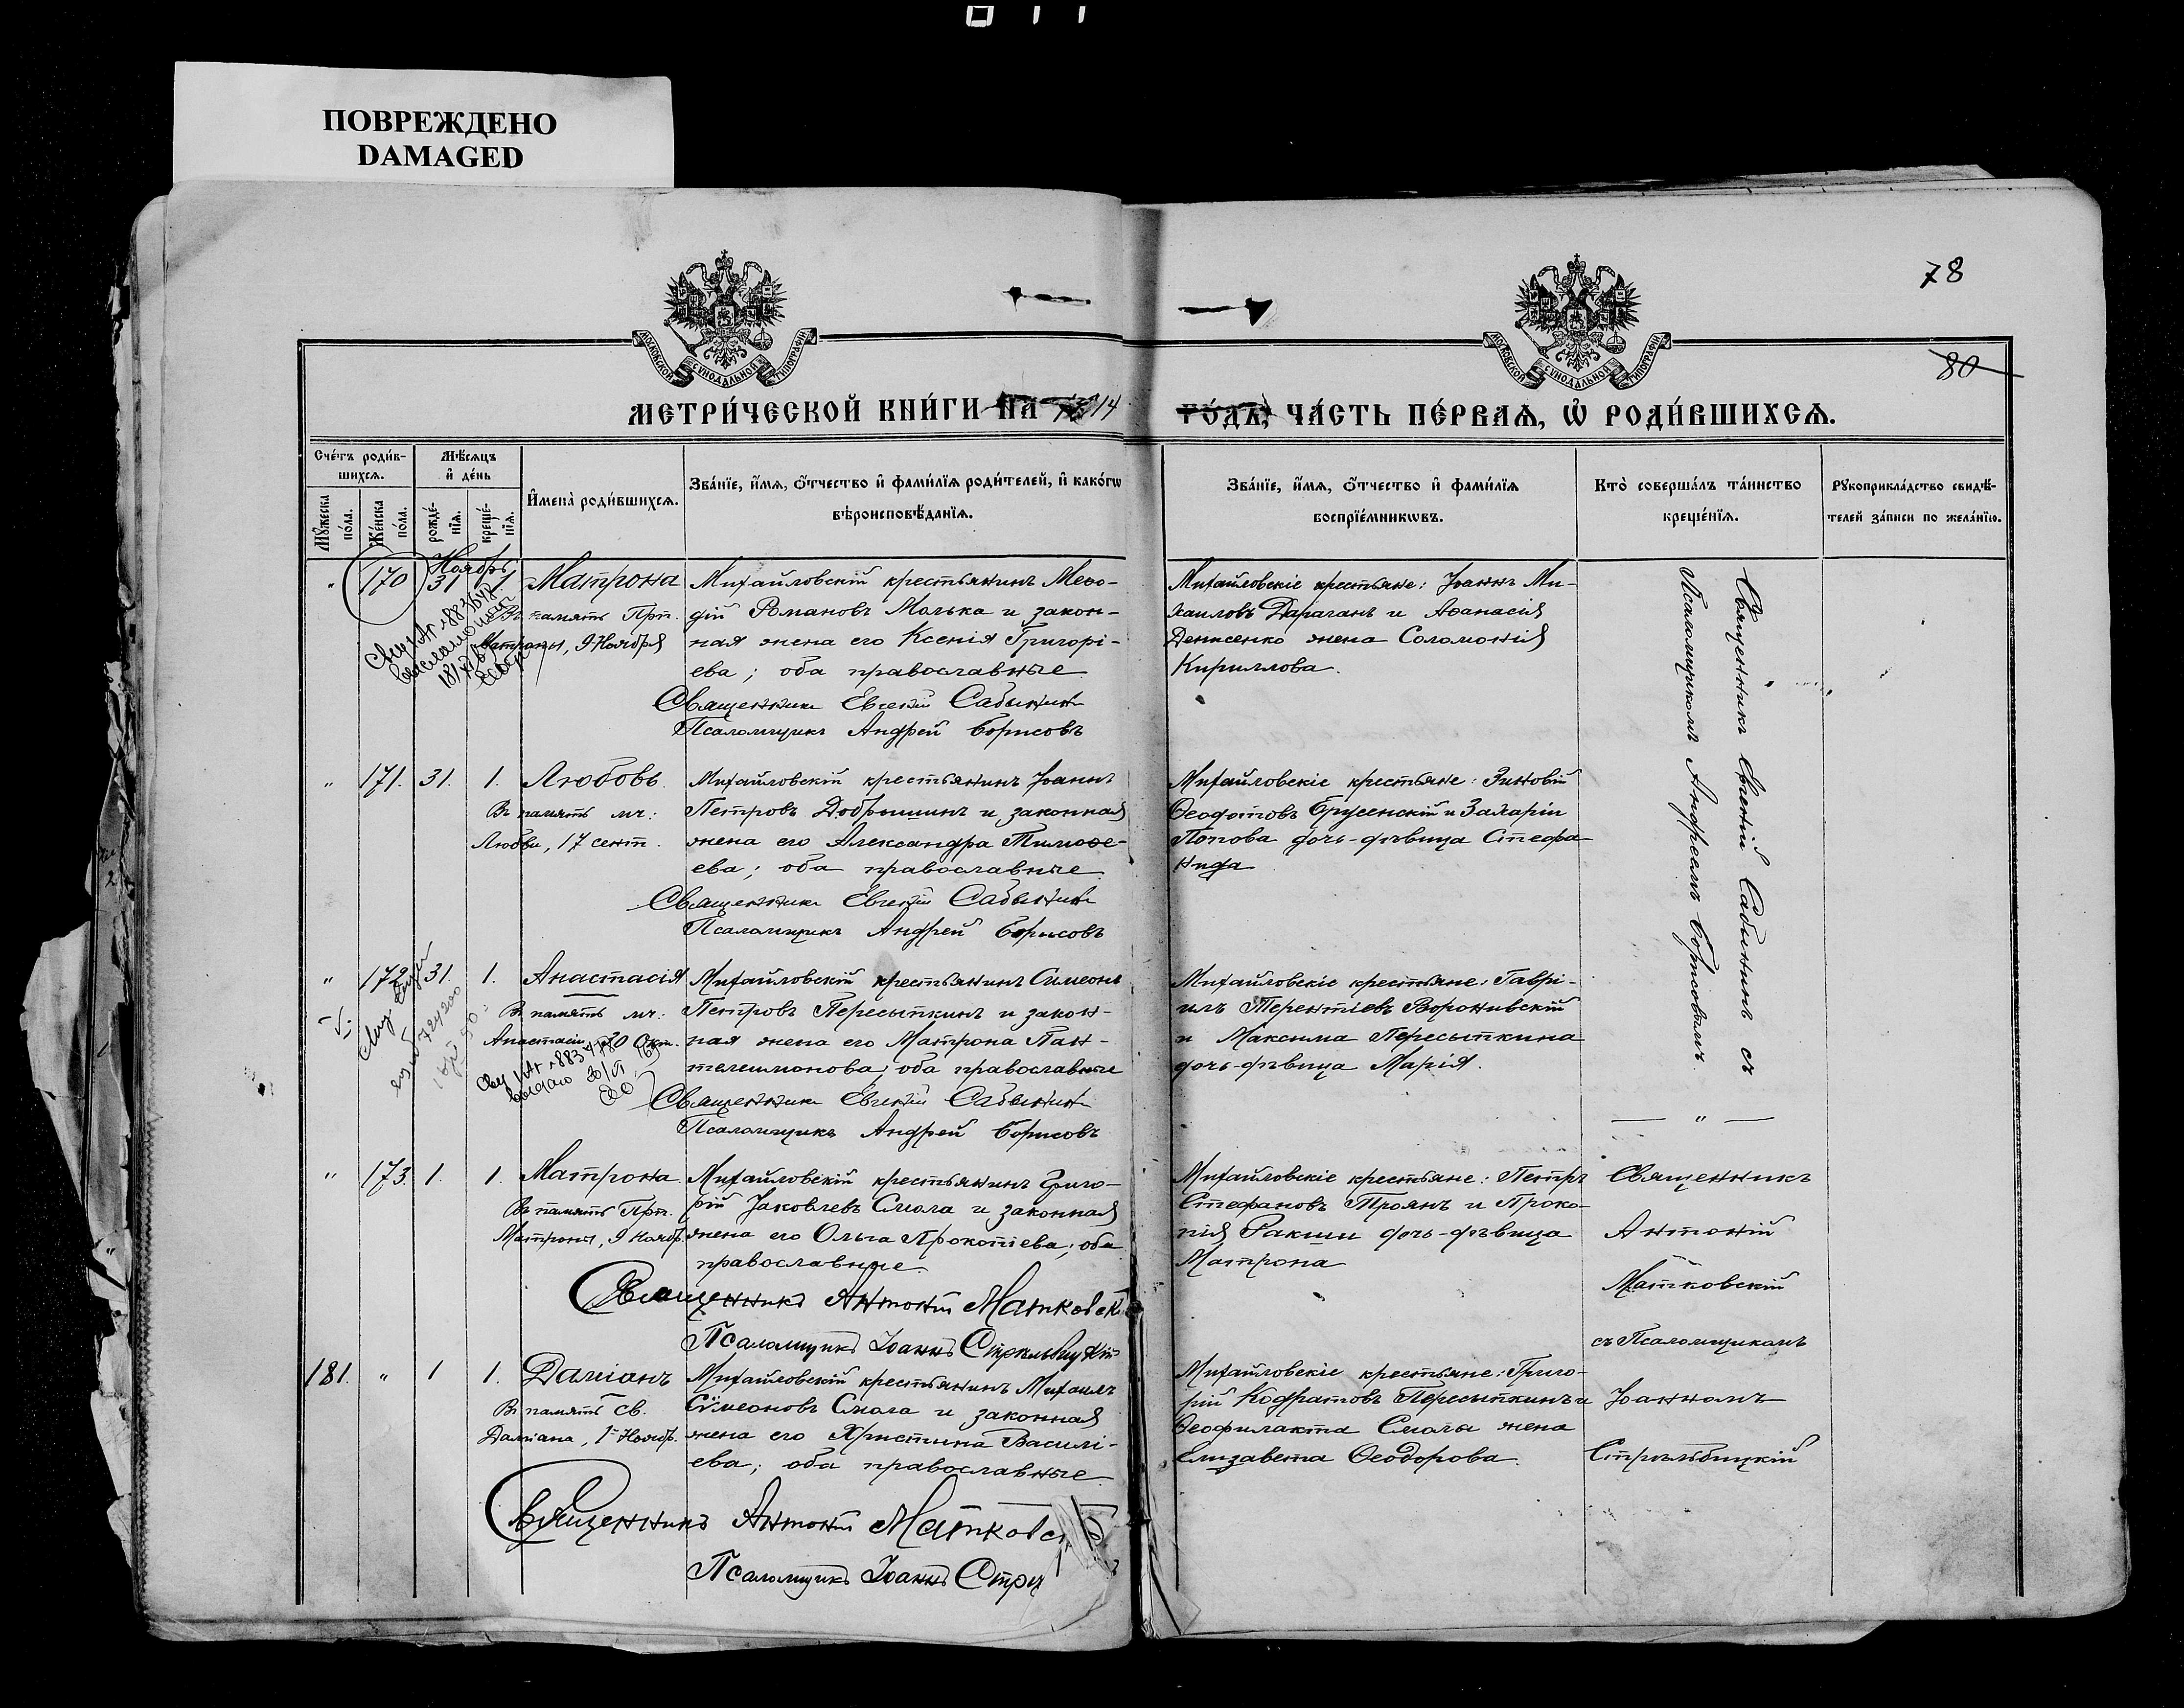 ПОВРЕЖДЕНО
DAMAGED
78
80
МОСКОВСКОЙ СѴНОДАЛЬНОЙ ТИПОГРАФІИ
МОСКОВСКОЙ СѴНОДАЛЬНОЙ ТИПОГРАФІИ
МЕТРИ́ЧЕСКОЙ КНИ́ГИ НА 1914
ГО́ДЪ, ЧА́СТЬ ПЕ́РВАѦ, Ѡ РОДИ́ВШИХСѦ.
Сче́тъ роди́в-
шихсѧ.
Мꙋ́жеска по́ла.
Же́нска по́ла.
Мѣ́сѧцъ
и де́нь
рожде́-
нїѧ.
креще́-
нїѧ.
Имена̀ роди́вшихсѧ.
Зва́нїе, и́мѧ, ѻ́тчество и фами́лїѧ роди́телей, и како́гѡ
вѣроисповѣ́данїѧ.
Зва́нїе, и́мѧ, ѻ́тчество и фами́лїѧ
воспрїе́мникѡвъ.
Кто̀ соверша́лъ та́инство
креще́нїѧ.
Рꙋкоприкла́дство свидѣ́-
телей за́писи по жела́нїю.
Ноябрь
" 170 31 1 Матрона
Въ память Прп.
Матроны, 9 Ноября
Михайловскій крестьянинъ Меѳо-
дій Романовъ Малька и закон-
ная жена его Ксенія Григорі-
ева; оба православные
Священникъ Евгеній Сабынинъ
Псаломщикъ Андрей Борисовъ
Михайловскіе крестьяне: Іоаннъ Ми-
хаиловъ Дараганъ и Аѳанасія
Денисенко жена Соломонія
Кириллова.
Священникъ Евгеній Сабынинъ съ
Псаломщикомъ Андреемъ Борисовымъ.
" 171. 31. 1. Любовь.
Въ память мч:
Любви, 17 сент.
Михайловскій крестьянинъ Іоаннъ
Петровъ Добрышинъ и законная
жена его Александра Тимоѳе-
ева; оба православные
Священникъ Евгеній Сабынинъ
Псаломщикъ Андрей Борисовъ
Михайловскіе крестьяне: Зиновій
Ѳеодотовъ Брусенскій и Захаріи
Попова дочь-дѣвица Стефа
нида
" 172 31. 1. Анастасія
Въ память мч:
Анастасіи 30 Окт.
Михайловскій крестьянинъ Симеонъ
Петровъ Пересыпкинъ и закон-
ная жена его Матрона Пан-
телеимонова; оба православные
Священникъ Евгеній Сабынинъ
Псаломщикъ Андрей Борисовъ
Михайловскіе крестьяне: Гаврі-
илъ Терентіевъ Воронивскій
и Максима Пересыпкина
дочь-дѣвица Марія.
— " —
" 173. 1. 1. Матрона.
Въ память Прп.
Матроны, 9 Ноябр.
Михайловскій крестьянинъ Григо-
рій Іаковлевъ Смола и законная
жена его Ольга Прокопіева; оба
православные.
Священникъ Антоній Матковскій
Псаломщикъ Іоаннъ Стрѣльбицкій
Михайловскіе крестьяне: Петръ
Стефановъ Троянъ и Проко-
пія Ракши дочь-дѣвица
Матрона
Священникъ
Антоній
Матковскій
съ Псаломщикомъ
Іоанномъ
Стрѣльбицкій
181. " 1 1. Даміанъ
Въ память св.
Даміана, 1го Ноябр.
Михайловскій крестьянинъ Михаилъ
Сѵмеоновъ Смола и законная
жена его Христина Василі-
ева; оба православные
Священникъ Антоній Матковск
Псаломщикъ Іоаннъ Стрѣ
Михайловскіе крестьяне: Григо-
рій Кодратовъ Пересыпкинъ и
Ѳеофилакта Смолы жена
Елизавета Ѳеодорова.